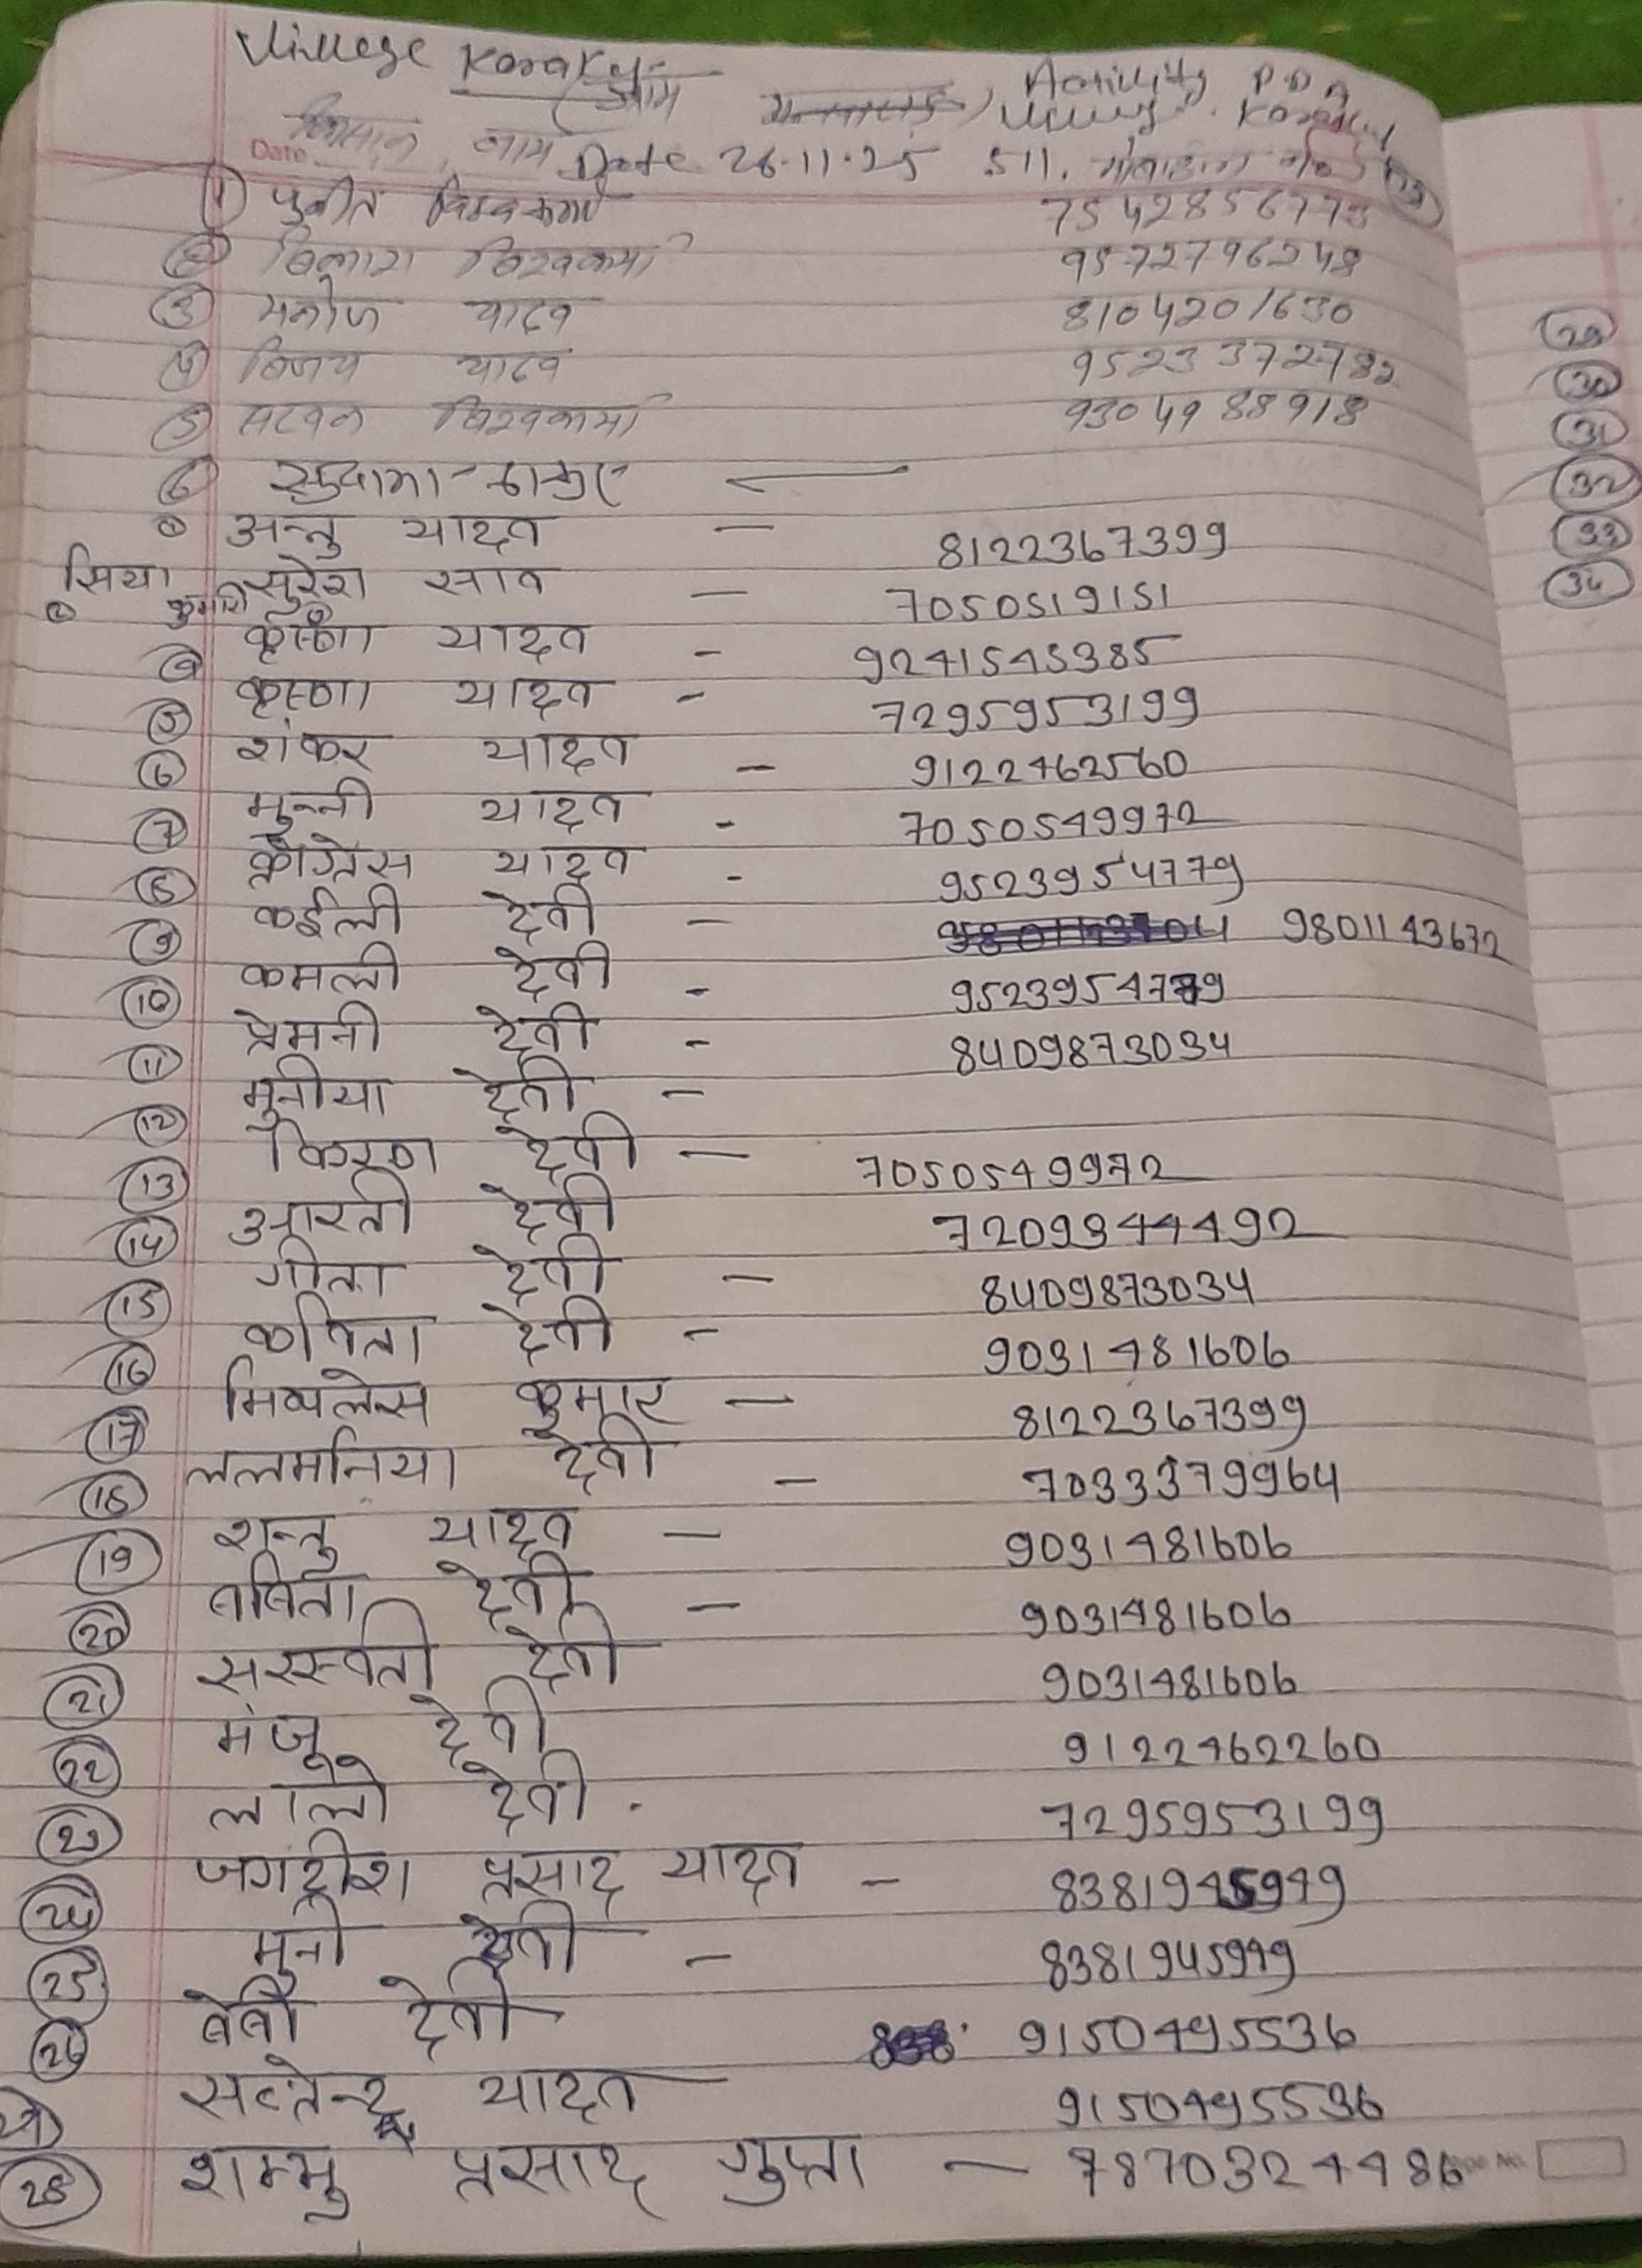 Village Karaky
ग्राम Activity PDA
किसान नाम Date 26.11.25 511. मोबाइल नं०
① पुनीत विश्वकर्मा 7542856773
② विश्वकर्मा 9572796248
③ मनोज यादव 8104201630
④ विजय यादव 9523372782
⑤ विश्वकर्मा 9304988918
⑥ सुदामा ठाकुर
अन्तु यादव - 8122367399
सिया कुमारी
सुरेश साव - 7050519151
कृष्णा यादव - 9241545385
④ कृष्णा यादव - 7295953199
⑤ शंकर यादव - 9122462560
⑥ मुन्नी यादव - 7050549972
⑦ यादव - 9523954779
⑧ कईली देवी - 9801143672
⑨ कमली देवी - 9523954779
⑩ प्रेमनी देवी - 8409873034
⑪ मुनीया देवी -
⑫ किरण देवी - 7050549972
⑬ आरती देवी 7209344492
⑭ गीता देवी - 8409873034
⑮ कविता देवी - 9031481606
⑯ मिथलेस कुमार - 8122367399
⑰ ललमनिया देवी - 7033379964
⑱ शन्तु यादव - 9031481606
⑲ बबिता देवी - 9031481606
⑳ सरस्वती देवी 9031481606
㉑ मंजू देवी 9122462260
㉒ लालो देवी . 7295953199
㉓ जगदीश प्रसाद यादव - 8381945949
㉔ मुनी देवी - 8381945949
㉕ बेबी देवी 9150495536
㉖ यादव 9150495536
㉘ शम्भु प्रसाद गुप्ता - 7870324486
㉙
㉚
㉛
㉜
㉝
㉞